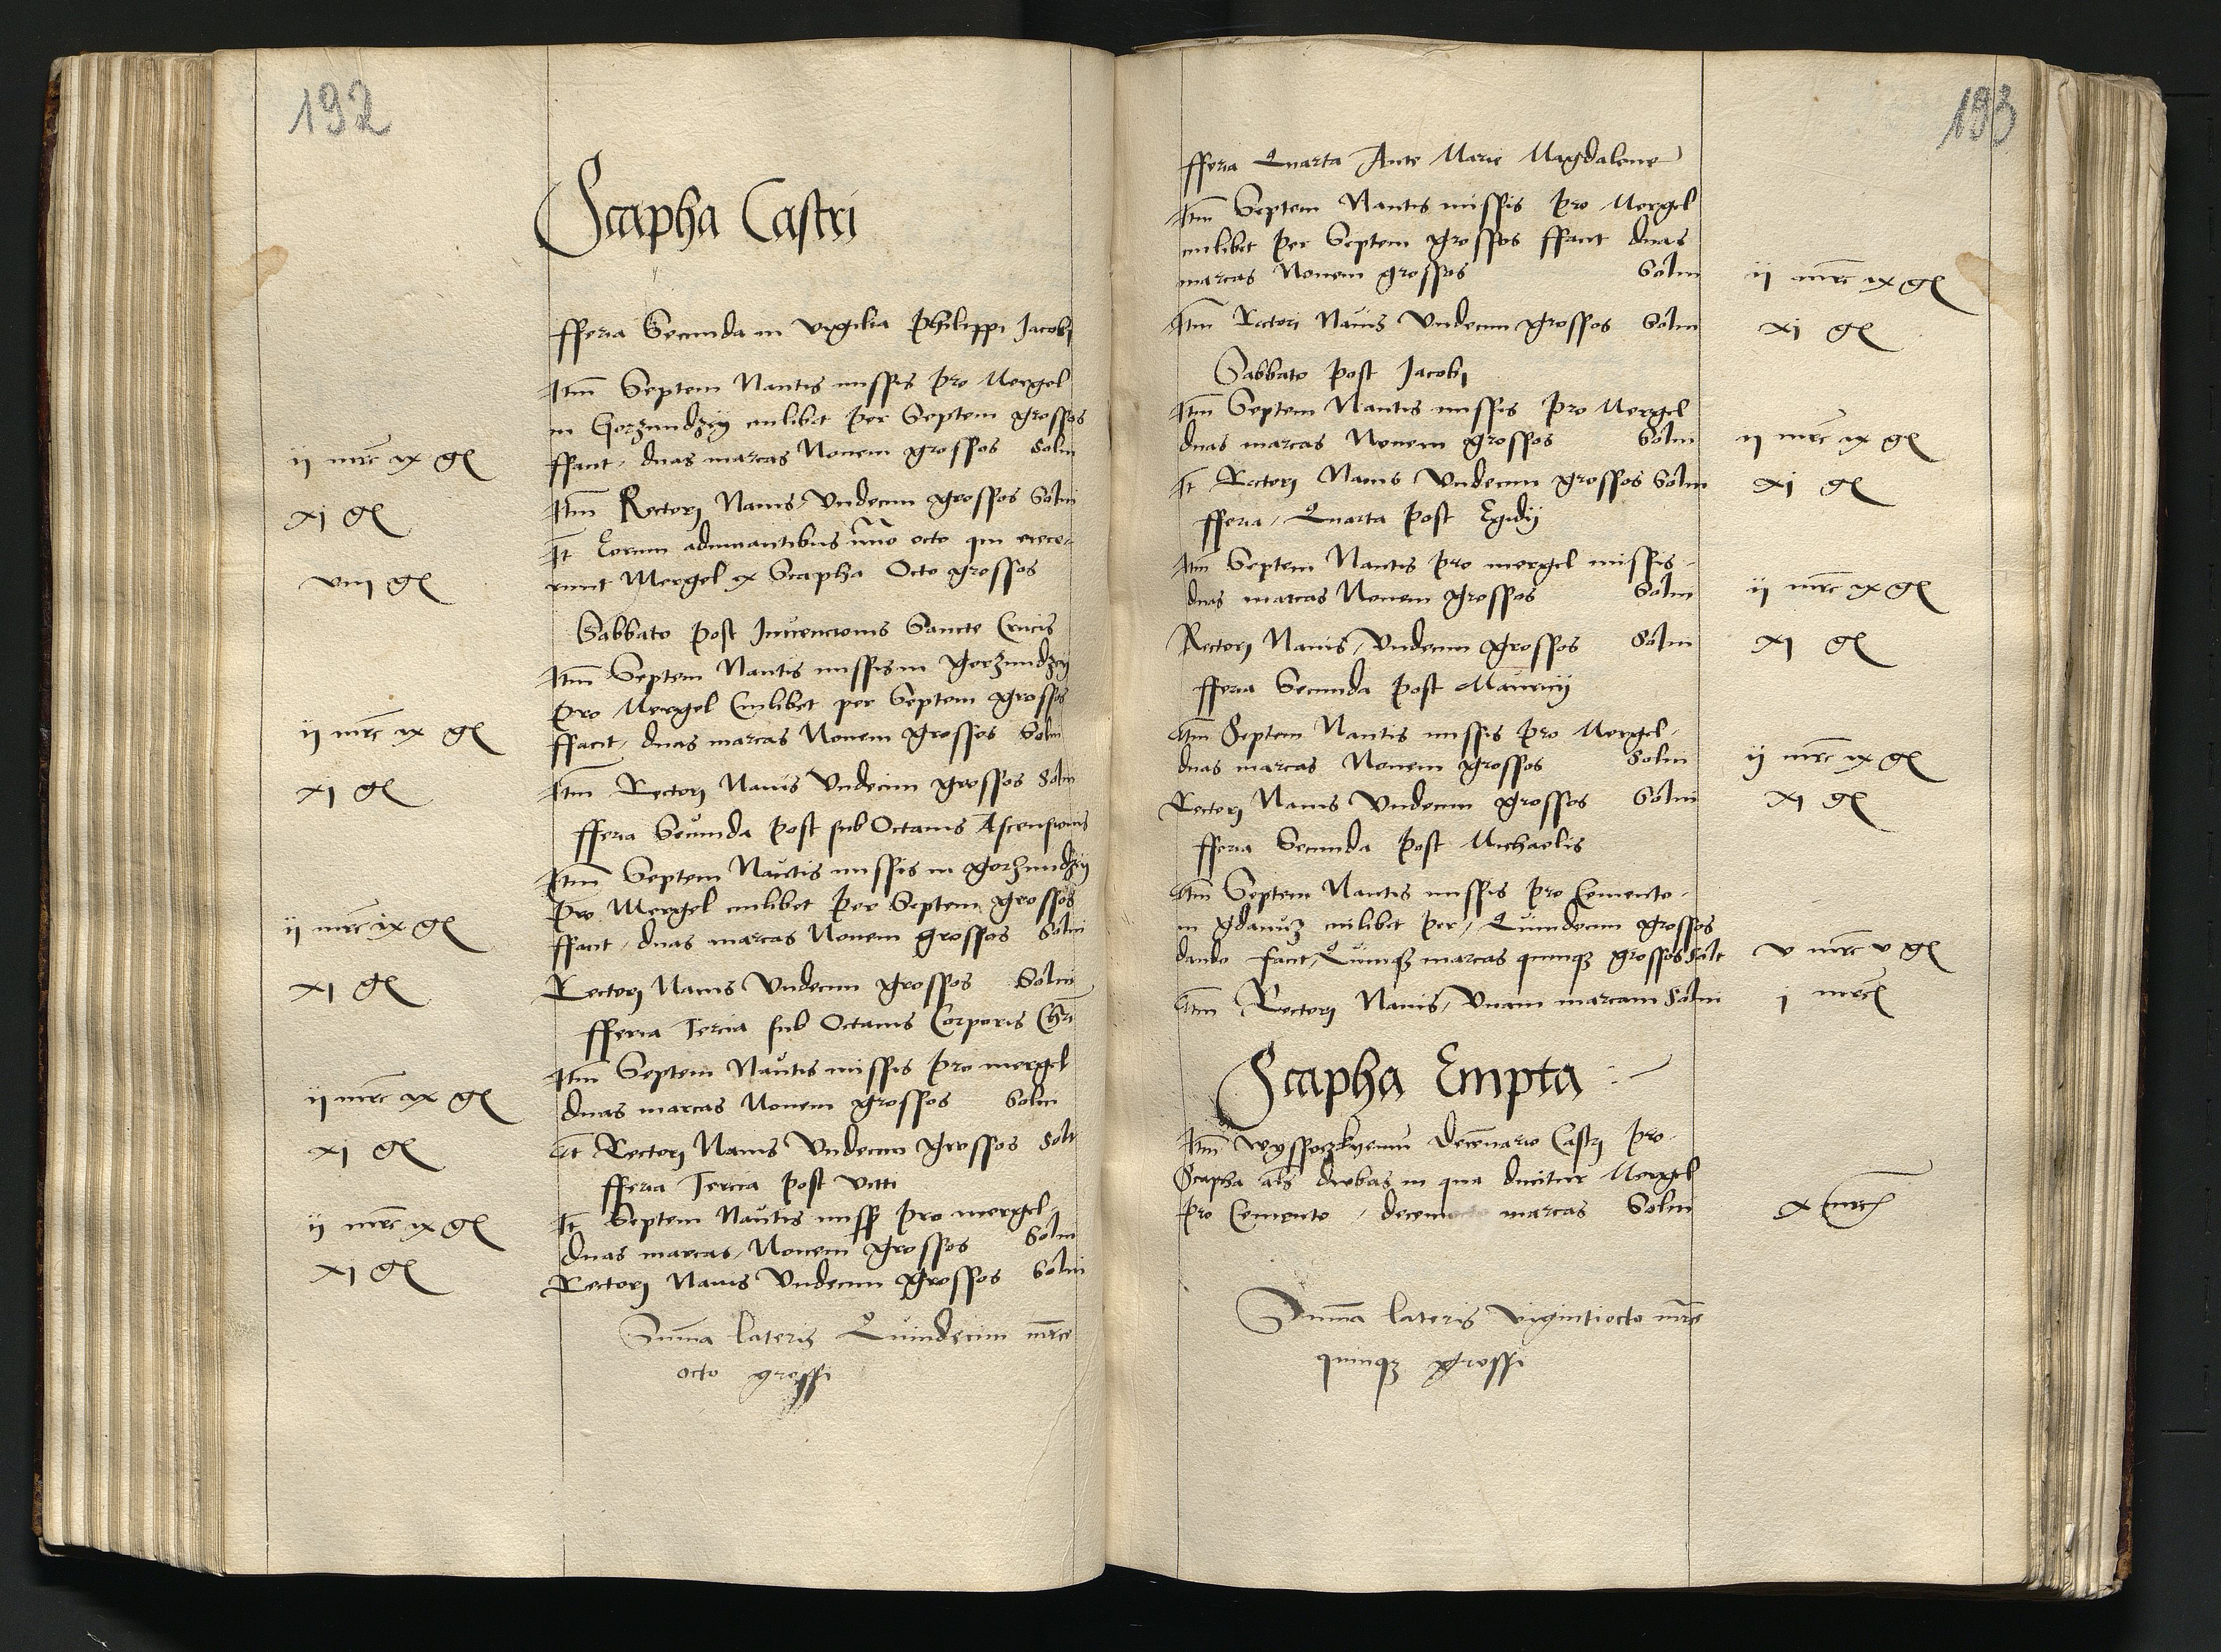 192
Scapha Castri
fferia Secunda in vigilia Philippi Jacobj
Itm Septem Nautis missis pro Mergel
in Gorzundzey cuilibet per Septem grossos
ij mrc ix gͤ ffacit duas marcas Nonem grossos Solui
xj g Itm Rectorj Nauis Vndecim grossos Solui
It Eorum adiuuantibus octo qui eiece-
viij g runt Mergel ex Scapha Octo grossos
Sabbato post Inuencionis Sancte Crucis
Itm Septem Nautis missis in gorzundzey
pro Mergel Cuilibet per Septem grossos
ij mrc ix g ffacit duas marcas Nonem grossos Solui
xj g Itm Rectorj Nauis Vndecim grossos Solui
fferia Secunda post sub Octauis Ascensionis
Itm Septem Nautis missis in gorzundzey
pro Mergel cuilibet per Septem grossos
ij mrc ix g ffacit duas marcas Nonem grossos Solui
xj g Rectorj Nauis Vndecim grossos Solui
fferia Tercia sub Octauis Corporis Cri
Itm Septem Nautis missis pro mergel
ij mrc ix g duas marcas Nonem grossos Solui
xj g It Rectorj Nauis Vndecim grossos Solui
fferia Tercia post Viti
It Septem Nautis miss pro mergel
ij mrc ix g duas marcas Nonem grossos Solui
xj g Rectorj Nauis Vndecim grossos Solui
Summa lateris Quindecim mrce
octo grossi
193
fferia Quarta Ante Marie Magdalene
Itm Septem Nautis missis pro Mergel
cuilibet per Septem grossos ffacit duas
marcas Nonem grossos Solui ij mrc ix g
Itm Rectori Nauis Vndecim grossos Solui xj g
Sabbato post Jacobj
Itm Septem Nautis missis pro Mergel
duas marcas Nonem grossos Solui ij mrc ix g
It Rectorj Nauis Vndecim grossos Solui xj g
fferia Quarta post Egidij
Itm Septem Nautis pro mergel missis
duas marcas Nonem grossos Solui ij mrc ix g
Rectorj Nauis Vndecim grossos Solui xj g
fferia Secunda post Mauricij
Itm Septem Nautis missis pro Mergel
duas marcas Nonem grossos Solui ij mrc ix g
Rectorj Nauis Vndecim grossos Solui xj g
fferia Secunda post Michaelis
Itm Septem Nautis missis pro Cemento
in gdauuz cuilibet per Quindecim grossos
dando facit Quinqz marcas quinqz grossos Solt v mrc v g
Itm Rectorj Nauis Vnam marcam Solui j mrc
Scapha Empta
Itm Wyssoczkyemu Decenario Castrj pro
Scapha als dubas in qua ducitur Mergel
pro Cemento decem marcas Solui x mrc
Summa lateris vigintiocto mrce
quinqz grossi